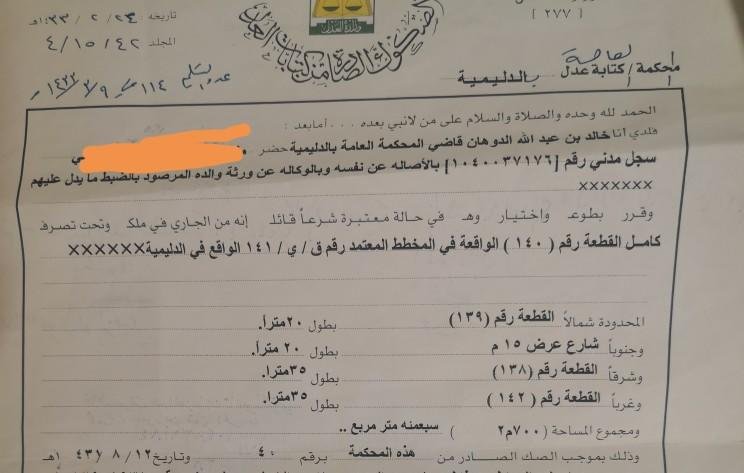 [ ٢٧٧ ]
وزارة العدل
الصكوك الصادرة من كتابات العدل
تاريخه : ٢٣ / ٢ / ١٤٣٣هـ
المجلد ٤/١٥/٤٢
عدد التسلسل ١١٤ في ٩ / ٣ / ١٤٣٣هـ
محكمة / كتابة عدل بالدليمية
الحمد لله وحده والصلاة والسلام على من لانبي بعده ... أمابعد :
فلدي أنا خالد بن عبد الله الدوهان قاضي المحكمة العامة بالدليمية حضر
سجل مدني رقم [١٠٤٠٠٣٧١٧٦] بالأصاله عن نفسه وبالوكاله عن ورثة والده المرصود بالضبط ما يدل عليهم
×××××××
وقرر بطوعه واختياره وهو في حالة معتبرة شرعاً قائلا إنه من الجاري في ملكه وتحت تصرفه
كامل القطعة رقم ( ١٤٠ ) الواقعة في المخطط المعتمد رقم ق / ي / ١٤١ الواقع في الدليمية××××××
المحدودة شمالاً القطعة رقم (١٣٩) بطول ٢٠متراً.
وجنوباً شارع عرض ١٥ م بطول ٢٠ متراً.
وشرقاً القطعة رقم (١٣٨) بطول ٣٥مترا.
وغرباً القطعة رقم (١٤٢ ) بطول ٣٥مترا.
ومجموع المساحة (٧٠٠م٢ ) سبعمئه متر مربع ..
وذلك بموجب الصك الصادر من هذه المحكمة برقم ٤٠ وتاريخ ١٢/ ٨ /